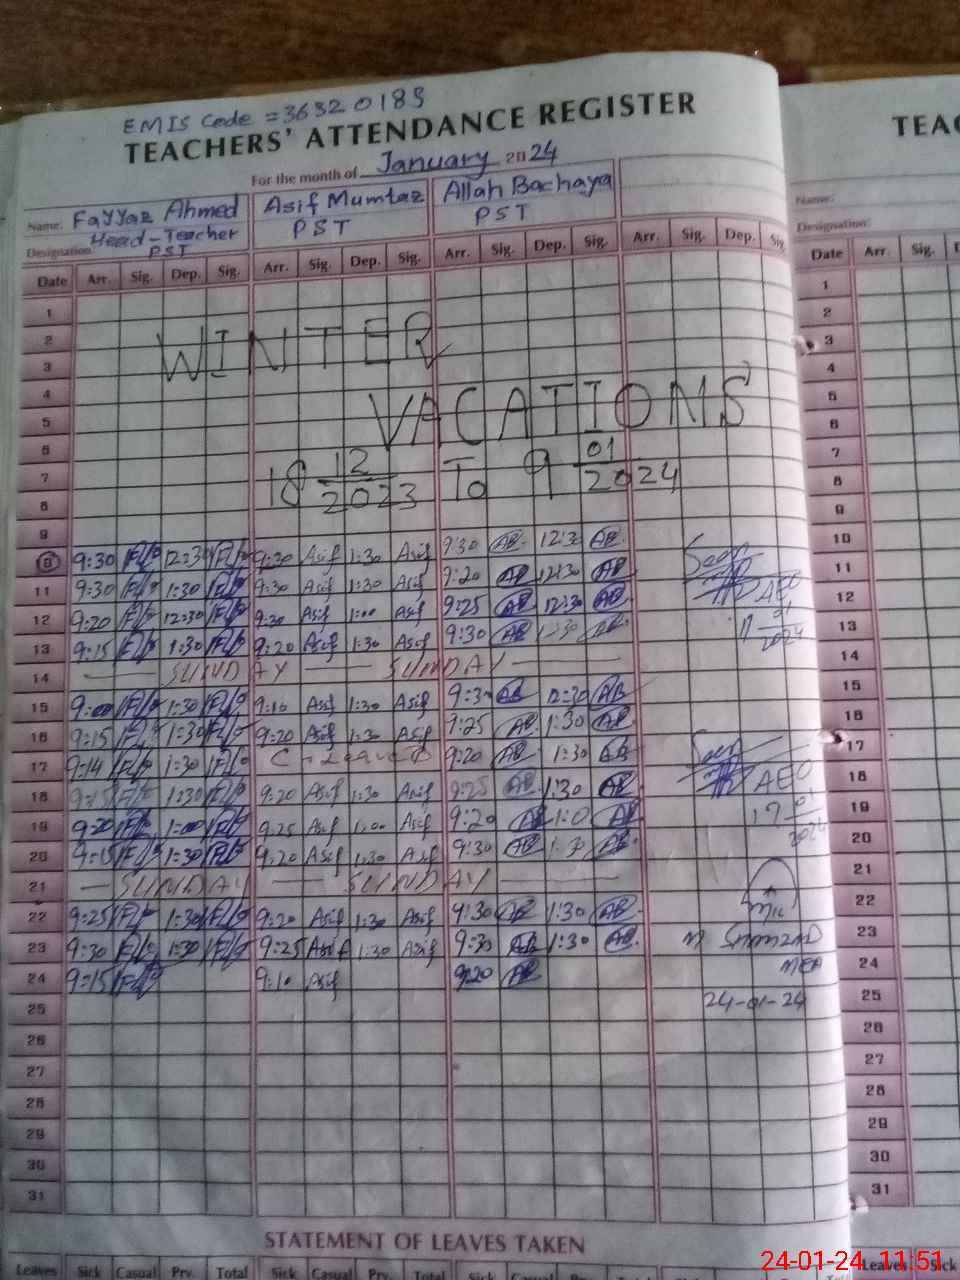 EMIS Code = 36320189
TEACHERS' ATTENDANCE REGISTER
For the month of January 2024
Name: Fayyaz Ahmed Asif Mumtaz Allah Bachaya
Designation: Head-Teacher PST PST PST
Date Arr. Sig. Dep. Sig. Arr. Sig. Dep. Sig. Arr. Sig. Dep. Sig. Arr. Sig. Dep. Sig.
1
2
3
WINTER
4
5
VACATIONS
6
7
18 12/2023 To 9 01/2024
8
9
10 9:30 12:30 9:30 Asif 1:30 Asif 9:30 AB 12:30 AB
11 9:30 1:30 9:30 Asif 1:30 Asif 9:20 AB 12:30 AB
12 9:20 12:30 9:30 Asif 1:00 Asif 9:25 AB 12:30 AB
13 9:15 1:30 9:20 Asif 1:30 Asif 9:30 AB 1:30 AB
14 SUNDAY SUNDAY
15 9:00 1:30 9:10 Asif 1:30 Asif 9:30 AB 12:30 AB
16 9:15 1:30 9:20 Asif 1:30 Asif 9:25 AB 1:30 AB
17 9:14 1:30 C-Leave 9:20 AB 1:30 AB
18 9:15 1:30 9:20 Asif 1:30 Asif 9:25 AB 1:30 AB
19 9:20 1:00 9:25 Asif 1:00 Asif 9:20 AB 1:0 AB
20 9:15 1:30 9:20 Asif 1:30 Asif 9:30 AB 1:30 AB
21 SUNDAY SUNDAY
22 9:25 1:30 9:20 Asif 1:30 Asif 9:30 AB 1:30 AB
23 9:30 1:30 9:25 Asif 1:30 Asif 9:30 AB 1:30 AB
24 9:15 9:10 Asif 9:20 AB
25
26
27
28
29
30
31
Seen
AEO
01/2024
Seen
AEO
17 01/2024
MEA
24-01-24
STATEMENT OF LEAVES TAKEN
Leaves Sick Casual Prv. Total Sick Casual Prv. Total
TEAC
Name:
Designation:
Date Arr. Sig. D
1
2
3
4
5
6
7
8
9
10
11
12
13
14
15
16
17
18
19
20
21
22
23
24
25
26
27
28
29
30
31
Leaves Sick
24-01-24 11:51